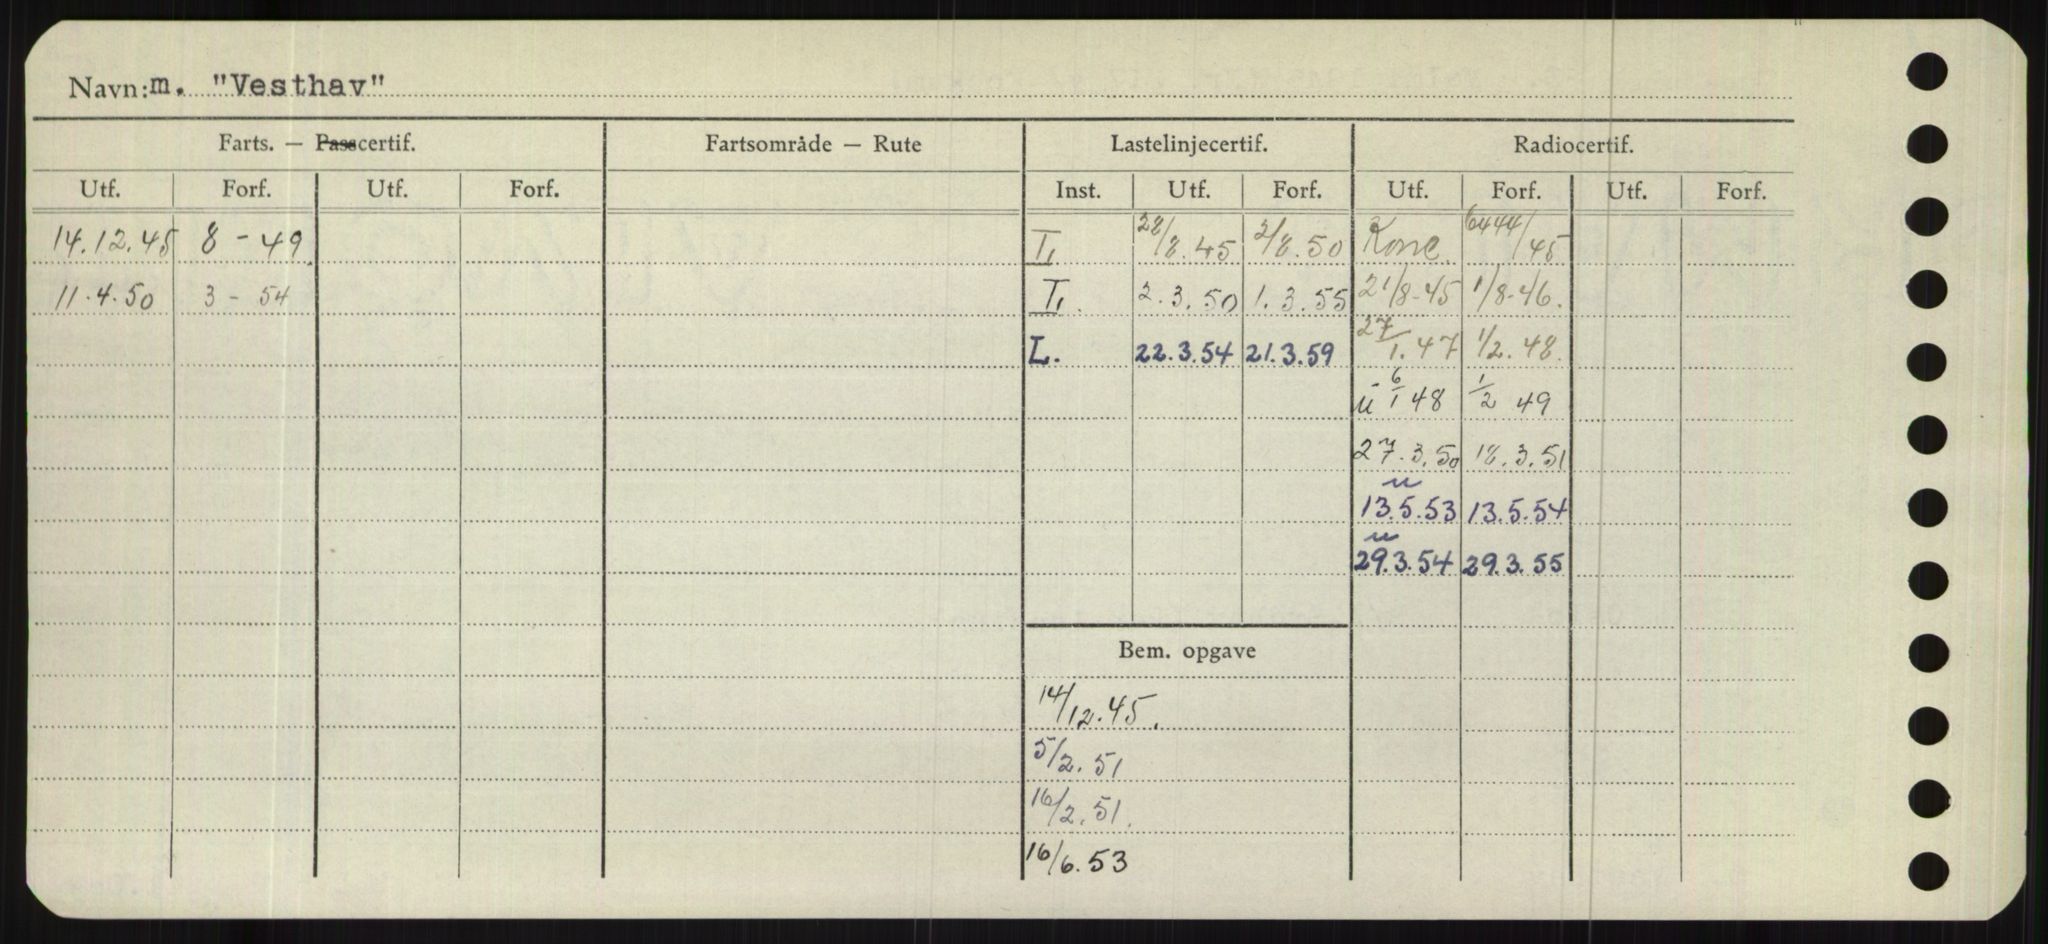 Navn: m. "Vesthav"
Farts. — Passcertif. Fartsområde — Rute Lastelinjecertif. Radiocertif.
Utf. Forf. Utf. Forf. Inst. Utf. Forf. Utf. Forf. Utf. Forf.
14.12.45 8 - 49 I, 28/8.45 2/8.50 Konc. 6444/45
11.4.50 3 - 54 I, 2.3.50 1.3.55 21/8-45 1/8-46.
L. 22.3.54 21.3.59 27/1.47 1/2.48.
u 6/1 48 1/2 49
27.3.50 18.3.51
u
13.5.53 13.5.54
u
29.3.54 29.3.55
Bem. opgave
14/12.45.
5/2.51
16/2.51.
16/6.53